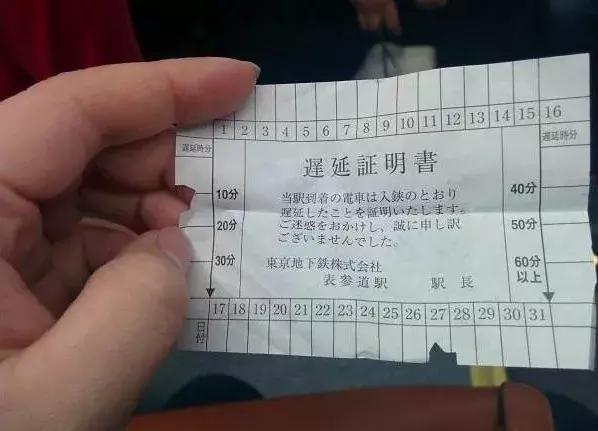 1 2 3 4 5 6 7 8 9 10 11 12 13 14 15 16
遅延時分 遅延時分
遅延証明書
当駅到着の電車は入鋏のとおり
10分 40分
遅延したことを証明いたします。
ご迷惑をおかけし、誠に申し訳
20分 50分
ございませんでした。
30分 東京地下鉄株式会社 60分以上
表参道駅 駅長
17 18 19 20 21 22 23 24 25 26 27 28 29 30 31
日付